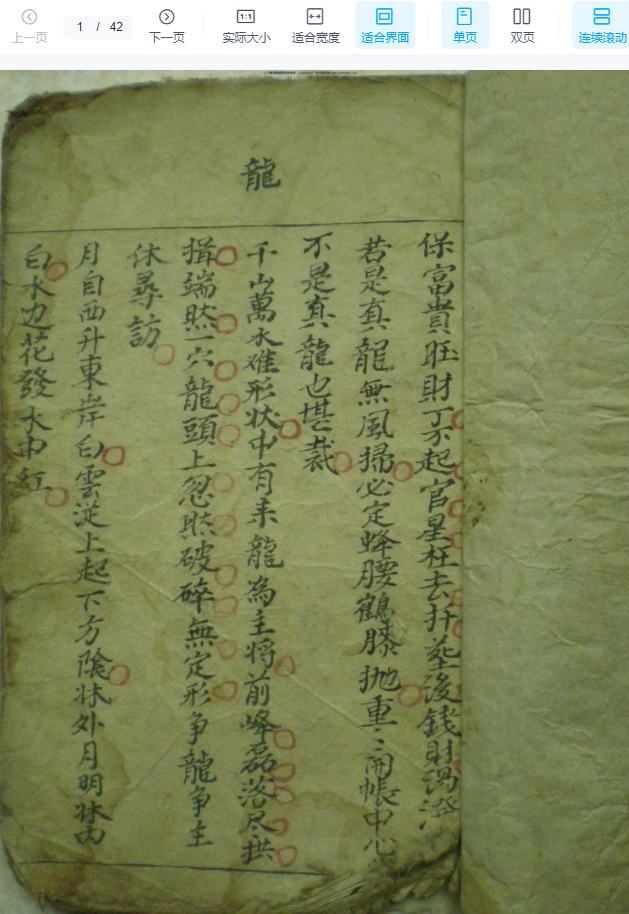 上一页
1 / 42
下一页
实际大小
适合宽度
适合界面
单页
双页
连续滚动
龍
保富貴旺財丁不起官星枉去扦塟後錢財濁潑
若是真龍無風掃必定蜂腰鶴膝抛重〻開帳中心
不是真龍也堪裁
千山萬水难形状中有来龍為主将前峰磊落尽拱
揖端然一穴龍頭上忽然破碎無定形争龍争主
休尋訪
月自西升東岸白雲從上起下方隂牀外月明牀内
白水边花發水中紅